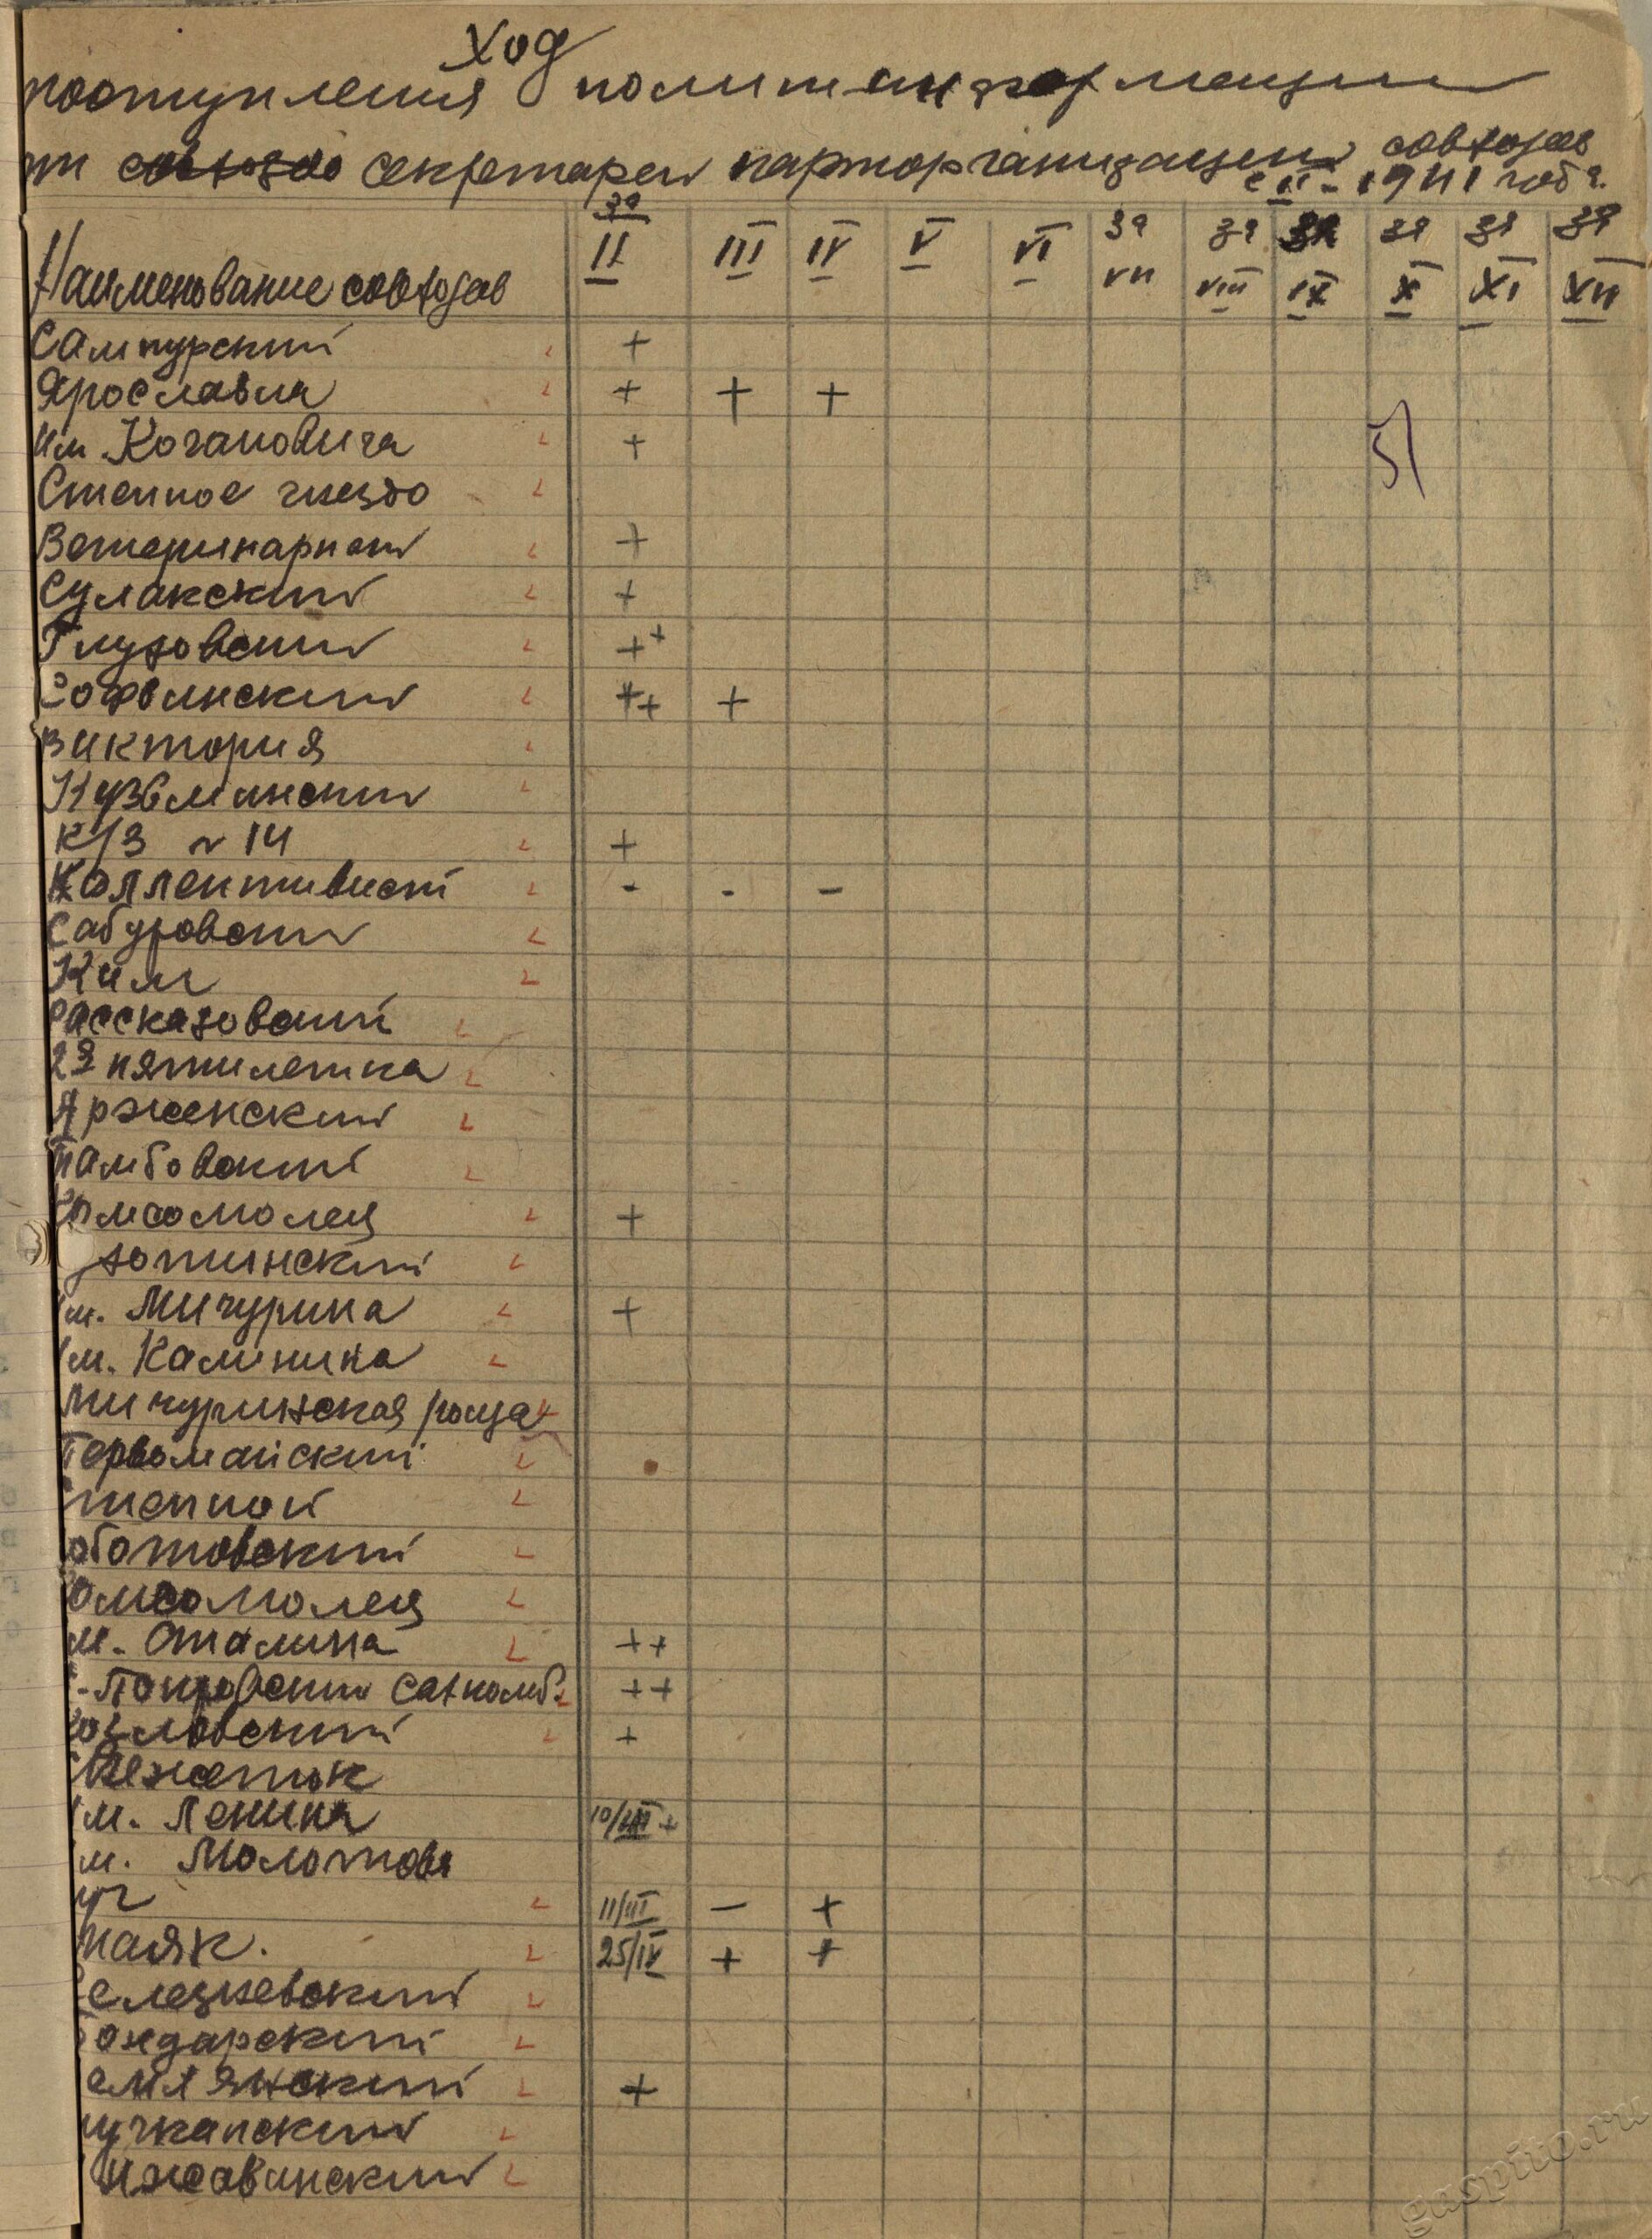 Ход
поступления политинформации
от совхозов секретарей парторганизаций совхозов
с II - 1941 года.
Наименование совхозов за II III IV V VI за VII за VIII за IX за X за XI за XII
Сампурский +
Ярославка + + +
Им. Когановича +
Степное гнездо
Ветеринарный +
Сулакский +
Глуховский ++
Софьинский ++ +
Виктория
Кузьминский
К/З № 14 +
Коллективист - - -
Сабуровский
Ким
Рассказовский
2я пятилетка
Арженский
Тамбовский
Комсомолец +
зотинский
им. Мичурина +
им. Калинина
Мичуринская роща
Первомайский
Степной
оботовский
Комсомолец
им. Сталина ++
-Покровский Сахкомб.
++
Козловский +
им. Ленина 10/III +
им. Молотова
11/III - +
Маяк. 25/IV + +
елезневский
Бондарский
емлянский +
учкапский
нжавинский
51
gaspito.ru